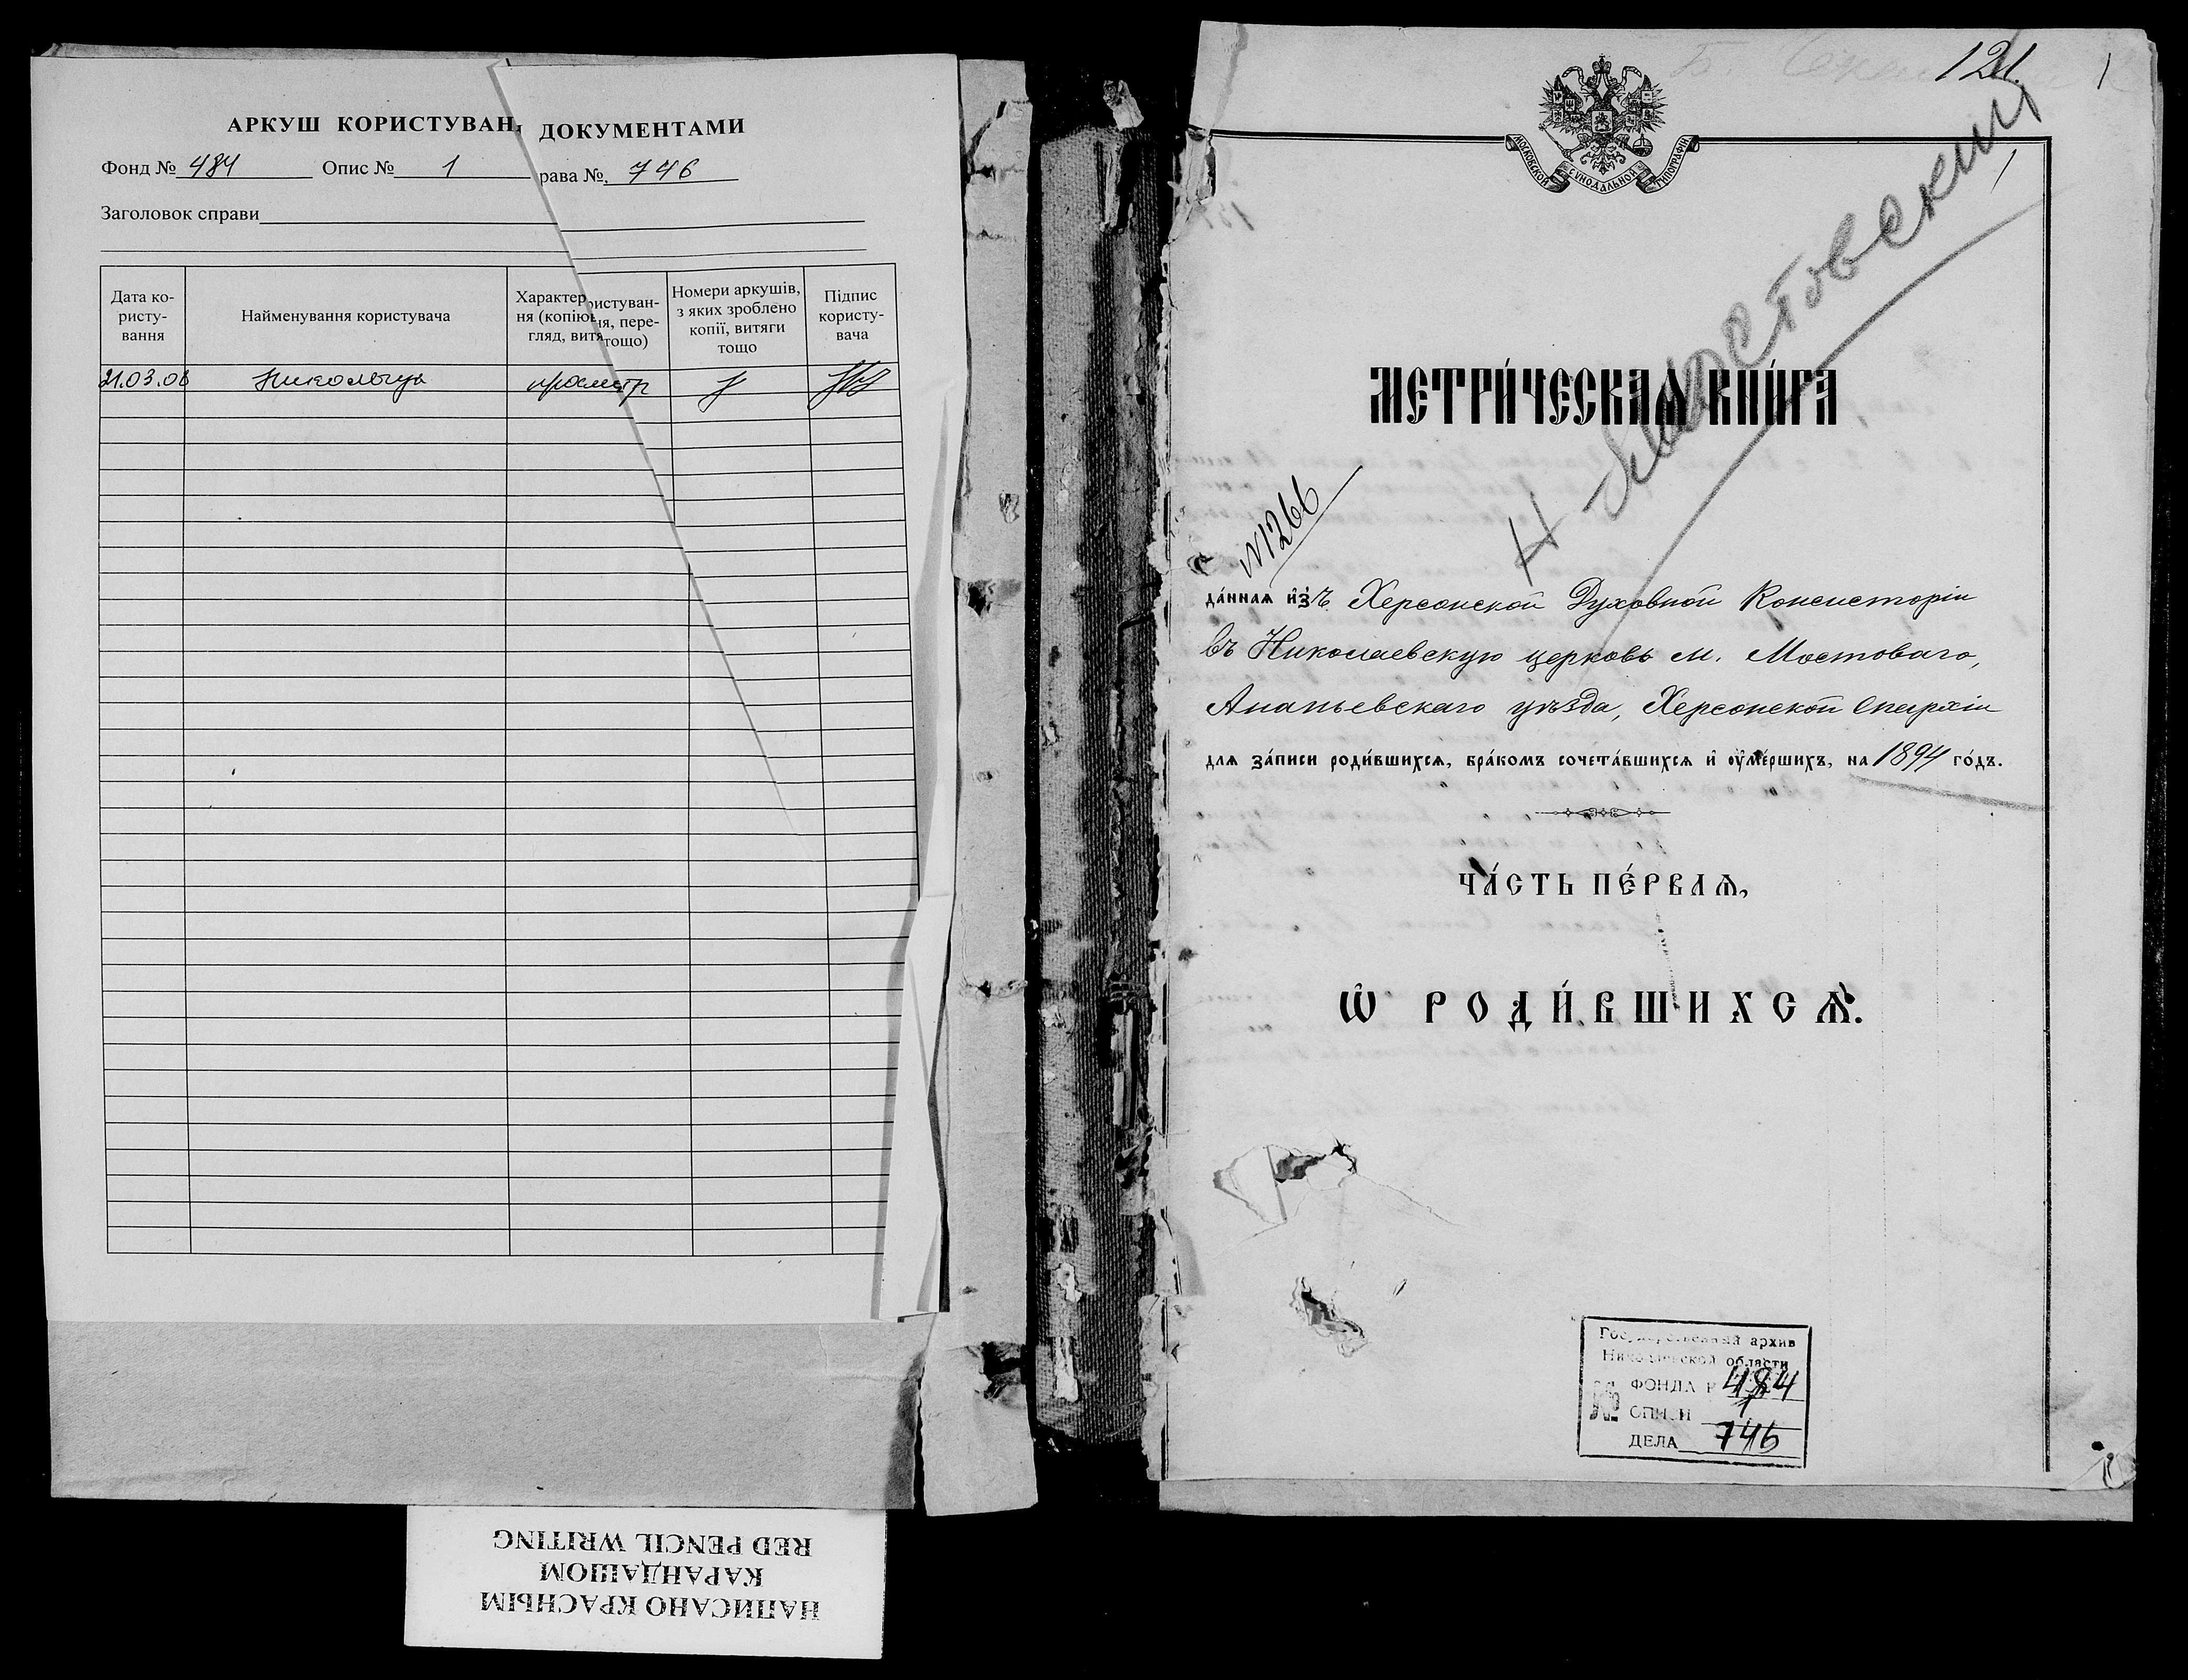 АРКУШ КОРИСТУВАН ДОКУМЕНТАМИ
Фонд № 484 Опис № 1 рава № 746
Заголовок справи
Дата ко-
ристу-
вання
Найменування користувача
Характер ристуван-
ня (копіюв ня, пере-
гляд, витя тощо)
Номери аркушів,
з яких зроблено
копії, витяги
тощо
Підпис
користу-
вача
21.03.06
НАПИСАНО КРАСНЫМ
КАРАНДАШОМ
RED PENCIL WRITING
121.
1
МОСКОВСКОЙ СѴНОДАЛЬНОЙ ТИПОГРАФІИ
1
Н-Мостовский
МЕТРИ́ЧЕСКАѦ КНИ́ГА
№1266
да́ннаѧ и҆з̾ъ Херсонской Духовной Консисторіи
въ Николаевскую церковь м. Мостоваго,
Ананьевскаго уѣзда, Херсонской Епархіи
длѧ за́писи роди́вшихсѧ, бра́комъ сочета́вшихсѧ и҆ ᲂу҆ме́ршихъ, на 1894 го́дъ.
ЧА́СТЬ ПЕ́РВАѦ,
Ѡ҆ РОДИ́ВШИХСѦ.
Государственный архив
Николаевской области
ФОНДА Р 484
№ ОПИСИ 1
ДЕЛА 746